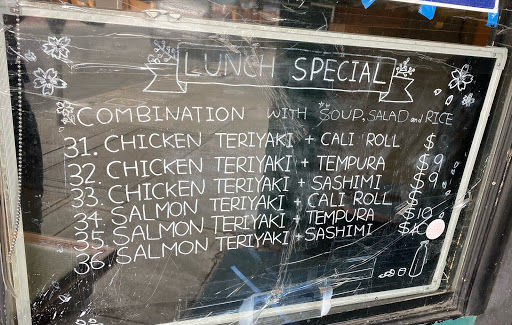 LUNCH SPECIAL
COMBINATION WITH SOUP, SALAD and RICE
31. CHICKEN TERIYAKI + CALI ROLL $
32. CHICKEN TERIYAKI + TEMPURA $9
33. CHICKEN TERIYAKI + SASHIMI $9
34 SALMON TERIYAKI + CALI ROLL $
35. SALMON TERIYAKI + TEMPURA $10
36. SALMON TERIYAKI + SASHIMI